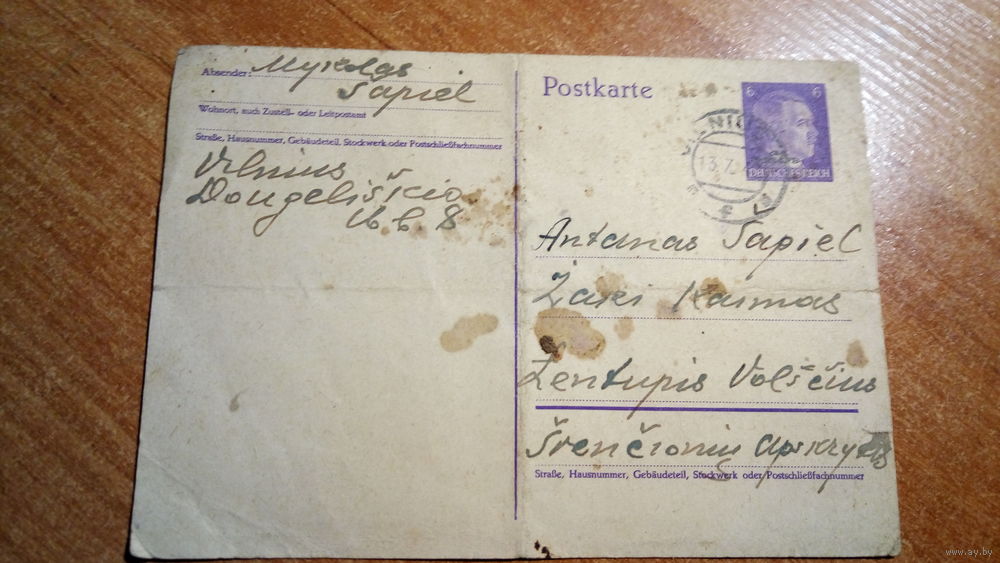 Absender: Mykolas
Sapiel
Wohnort, auch Zustell- oder Leitpostamt
Straße, Hausnummer, Gebäudeteil, Stockwerk oder Postschließfachnummer
Vilnius
Dougeliškio
16 b. 8
Postkarte
6 6
DEUTSCHES REICH
13.7.
Antanas Sapiel
Žarei Kaimas
Zentupis Volščius
Švenčionių Apskrytis
Straße, Hausnummer, Gebäudeteil, Stockwerk oder Postschließfachnummer
www.ay.by